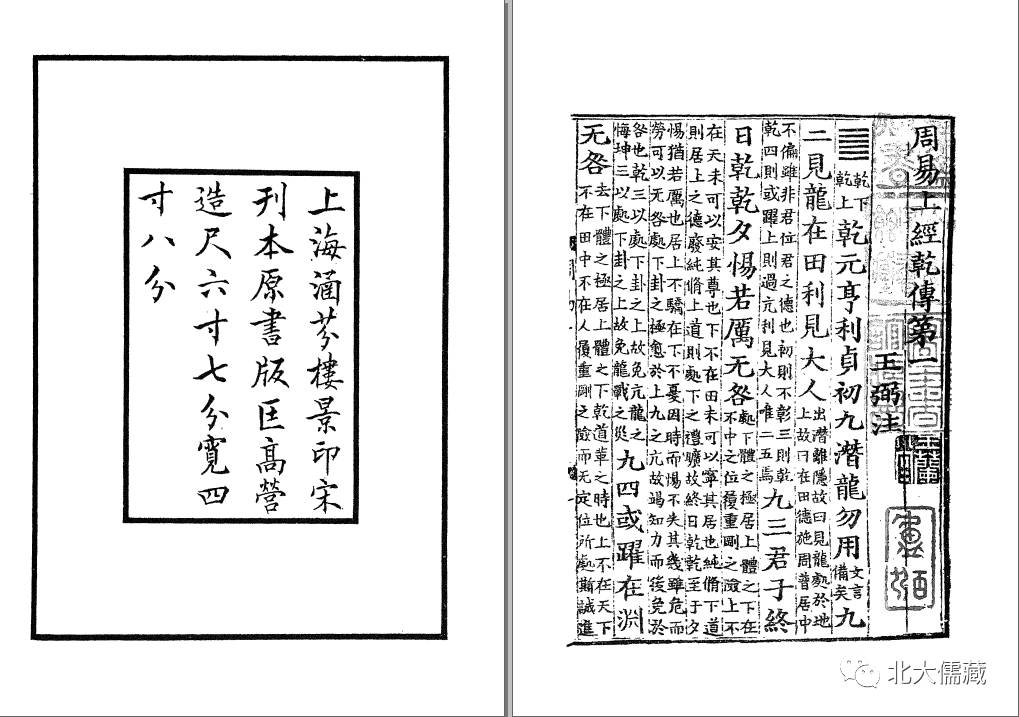 上海涵芬樓景印宋
刊本原書版匡高營
造尺六寸七分寬四
寸八分
周易上經乾傳第一
王弼注
䷀乾下乾上乾元亨利貞初九潛龍勿用文言備矣九
二見龍在田利見大人出潛離隱故曰見龍處於地上故曰在田德施周普居中
不偏雖非君位君之德也初則不彰三則乾乾四則或躍上則過亢利見大人唯二五焉九三君子終
日乾乾夕惕若厲无咎處下體之極居上體之下在不中之位履重剛之險上不
在天未可以安其尊也下不在田未可以寧其居也純脩下道則居上之德廢純脩上道則處下之禮曠故終日乾乾至于夕
惕猶若厲也居上不驕在下不憂因時而惕不失其幾雖危而勞可以无咎處下卦之極愈於上九之亢故竭知力而後免於
咎也乾三以處下卦之上故免亢龍之悔坤三以處下卦之上故免龍戰之災九四或躍在淵
无咎去下體之極居上體之下乾道革之時也上不在天下不在田中不在人履重剛之險而无定位所處斯誠進
北大儒藏